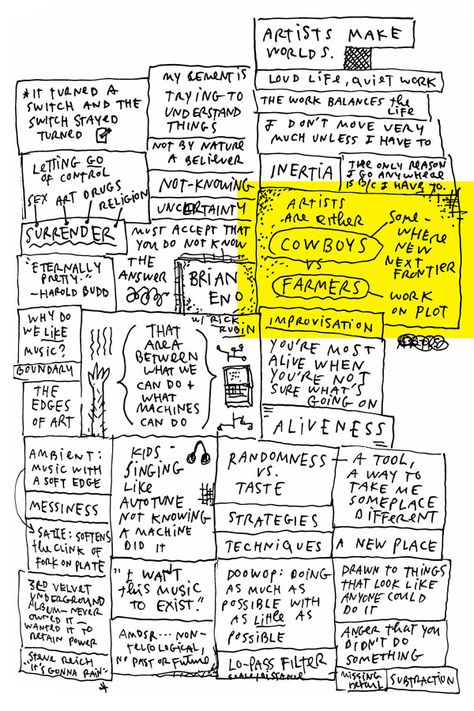 ARTISTS MAKE
WORLDS.
LOUD LIFE, QUIET WORK
THE WORK BALANCES the LIFE
I DON'T MOVE VERY
MUCH UNLESS I HAVE TO
INERTIA
THE ONLY REASON
I GO ANYWHERE
IS B/C I HAVE TO.
MY BEMENT IS
TRYING TO
UNDERSTAND
THINGS
NOT BY NATURE
A BELIEVER
NOT-KNOWING
UNCERTAINTY
*IT TURNED A
SWITCH AND THE
SWITCH STAYED
TURNED
LETTING GO
OF CONTROL
SEX ART DRUGS RELIGION
SURRENDER
MUST ACCEPT THAT
YOU DO NOT KNOW
THE
ANSWER
"ETERNALLY
PRETTY."
-HAROLD BUDD
BRIAN
ENO
W/ RICK
RUBIN
ARTISTS
ARE EITHER
COWBOYS
VS
FARMERS
SOME-
WHERE
NEW
NEXT
FRONTIER
WORK
ON PLOT
IMPROVISATION
YOU'RE MOST
ALIVE WHEN
YOU'RE NOT
SURE WHAT'S
GOING ON
ALIVENESS
WHY DO
WE LIKE
MUSIC?
BOUNDARY
THE
EDGES
OF ART
THAT
AREA
BETWEEN
WHAT WE
CAN DO +
WHAT
MACHINES
CAN DO
AMBIENT:
MUSIC WITH
A SOFT EDGE
MESSINESS
SATIE: SOFTENS
the CLINK OF
FORK ON PLATE
3RD VELVET
UNDERGROUND
ALBUM- NEVER
OWNED IT-
WANTED IT TO
RETAIN POWER
"STEVE REICH
"IT'S GONNA RAIN"
KIDS-
SINGING
LIKE
AUTOTUNE
NOT KNOWING
A MACHINE
DID IT
"I WANT
this MUSIC
TO EXIST."
NON-
TELIOLOGICAL,
NO PAST or FUTURE
RANDOMNESS
VS.
TASTE
STRATEGIES
TECHNIQUES
DOOWOP: DOING
AS MUCH AS
POSSIBLE WITH
AS LITTLE AS
POSSIBLE
LO-PASS FILTER
A TOOL,
A WAY TO
TAKE ME
SOMEPLACE
DIFFERENT
A NEW PLACE
DRAWN TO THINGS
THAT LOOK LIKE
ANYONE COULD
DO IT
ANGER THAT YOU
DIDN'T DO
SOMETHING
MISSING
DETAIL
SUBTRACTION